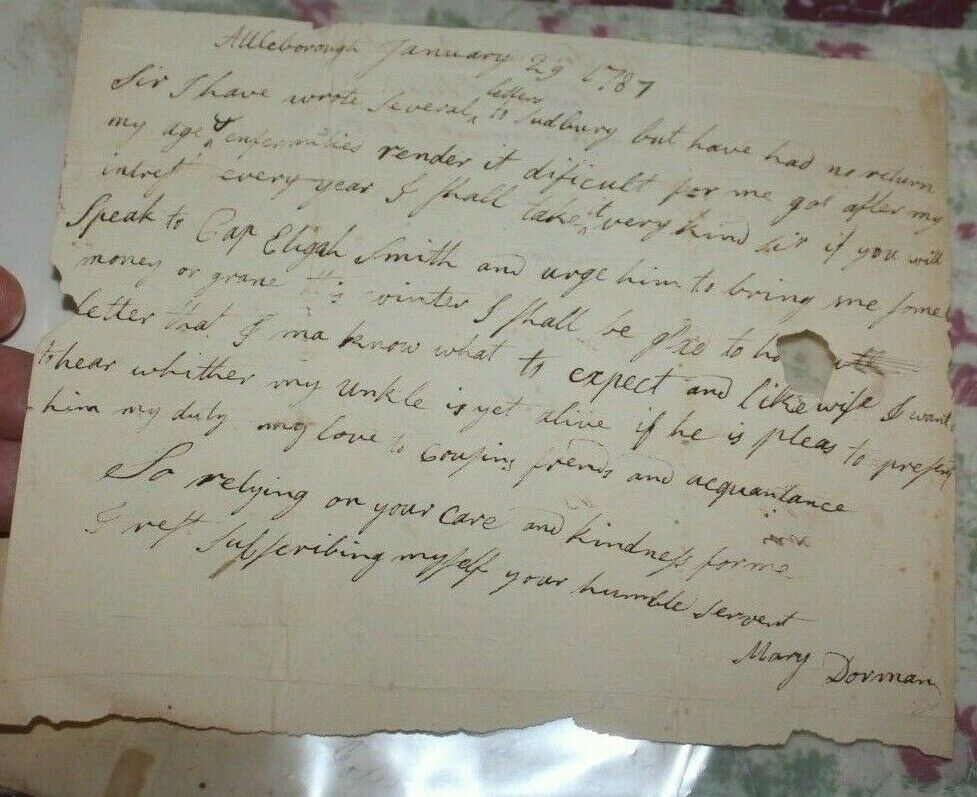 Attleborough January 29 1787
Sir I have wrote Several letters to Sudbury but have had no return
my age & enfermities render it dificult for me got after my
intrest every year I shall take it very kind sir if you will
Speak to Cap Elijah Smith and urge him to bring me some
money or grane this winter I shall be glad to
letter that I ma know what to expect and likewise I want
to hear whither my unkle is yet alive if he is pleas to present
him my duty my love to cousins frends and acquantance
So relying on your care and kindness for me
I rest subscribing myself your humble servent
Mary Dorman